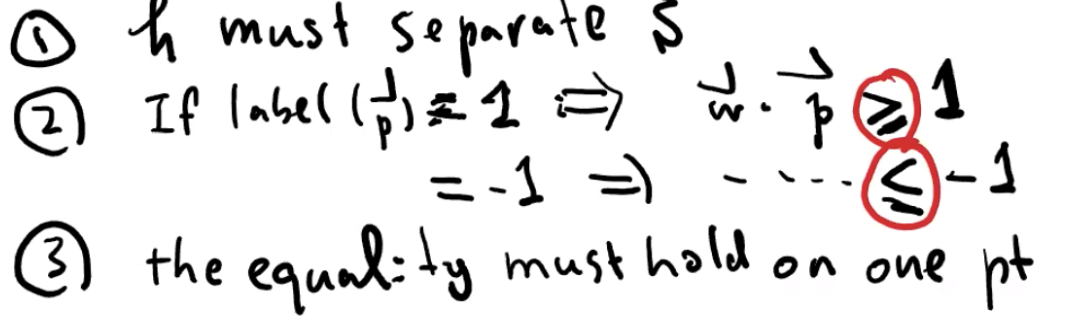 ① h must separate S
② If label(p⃗) = 1 ⇒ w⃗ · p⃗ ≥ 1
= -1 ⇒ - - - - - ≤ -1
③ the equality must hold on one pt